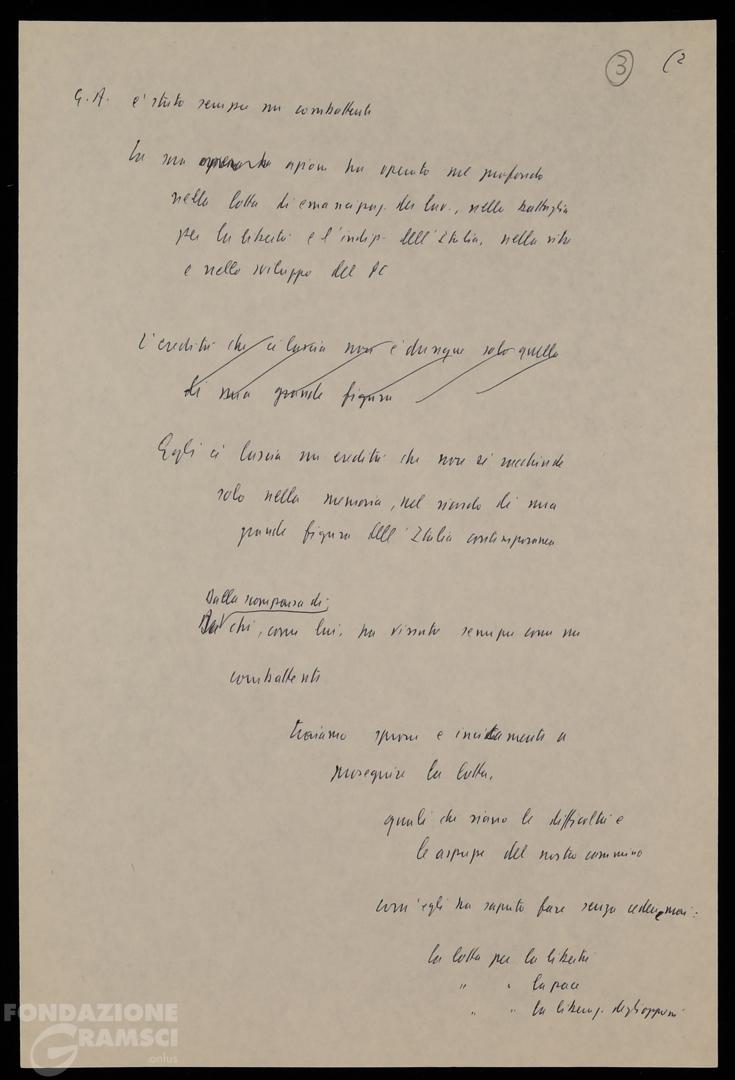 3 (2
G. A. è stato sempre un combattente
La sua azione ha operato nel profondo
nella lotta di emancipaz. dei lav., nella battaglia
per la libertà e l'indip. dell'Italia, nella vita
e nello sviluppo del PC
L'eredità che ci lascia non è dunque solo quella
di una grande figura
Egli ci lascia un eredità che non si racchiude
solo nella memoria, nel ricordo di una
grande figura dell'Italia contemporanea
Dalla scomparsa di
Da chi, come lui, ha vissuto sempre come un
combattente
traiamo sprone e incitamento a
proseguire la lotta,
quali che siano le difficoltà e
le asprezze del nostro cammino
com'egli ha saputo fare senza cedere mai:
la lotta per la libertà
" " la pace
" " la liberaz. degli oppressi
FONDAZIONE
GRAMSCI
onlus